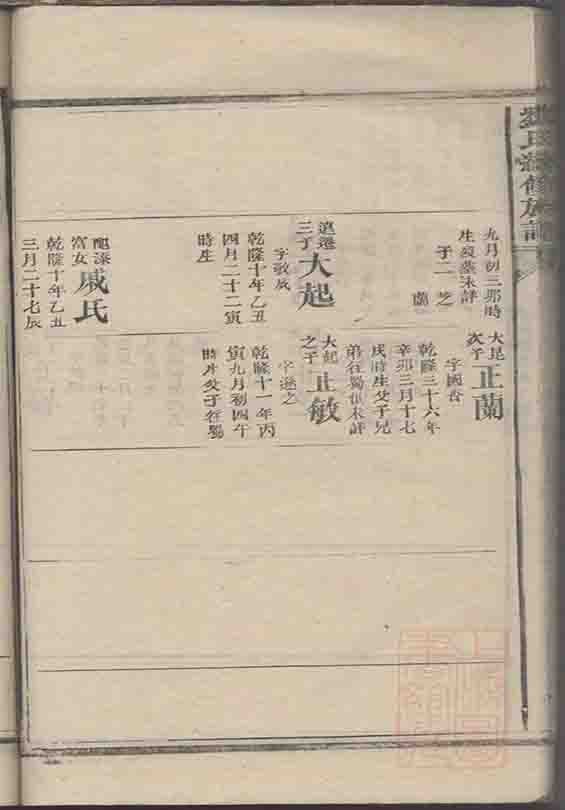 氏 修族譜
九月初三卯時
生歿墓未詳
子二 芝
蘭
遷
三子
大起
字敬成
乾隆十年乙丑
四月二十二寅
時生
配漆
富女
戚氏
乾隆十年乙丑
三月二十七辰
大昆
次子
正蘭
字國香
乾隆三十六年
辛卯三月十七
戌時生父子兄
弟往蜀俱未詳
大起
之子
正敏
字遜之
乾隆十一年丙
寅九月初四午
時生父子往蜀